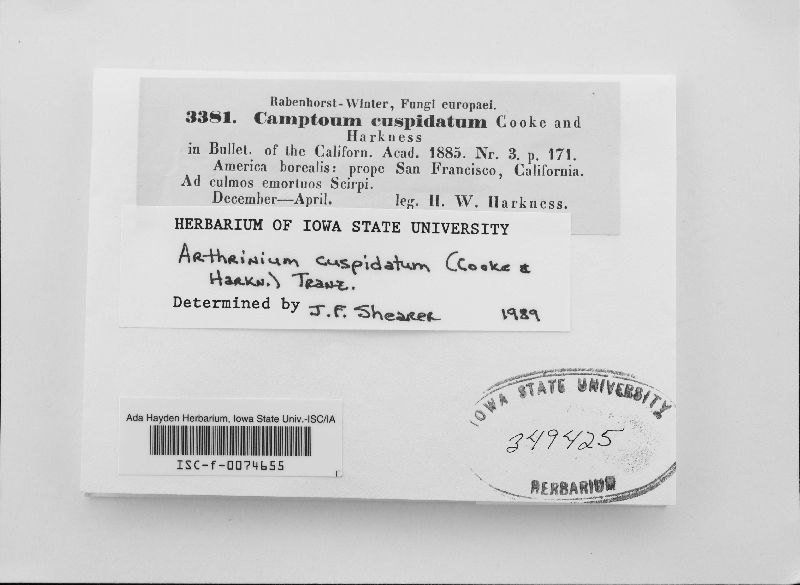 Rabenhorst-Winter, Fungi europaei.
3381. Camptoum cuspidatum Cooke and
Harkness
in Bullet. of the Californ. Acad. 1885. Nr. 3. p. 171.
America borealis: prope San Francisco, California.
Ad culmos emortuos Scirpi.
December—April. leg. H. W. Harkness.
HERBARIUM OF IOWA STATE UNIVERSITY
Arthrinium cuspidatum (Cooke &
Harkn.) Tranz.
Determined by J.F. Shearer 1989
Ada Hayden Herbarium, Iowa State Univ.-ISC/IA
ISC-f-0074655
IOWA STATE UNIVERSITY
349425
HERBARIUM